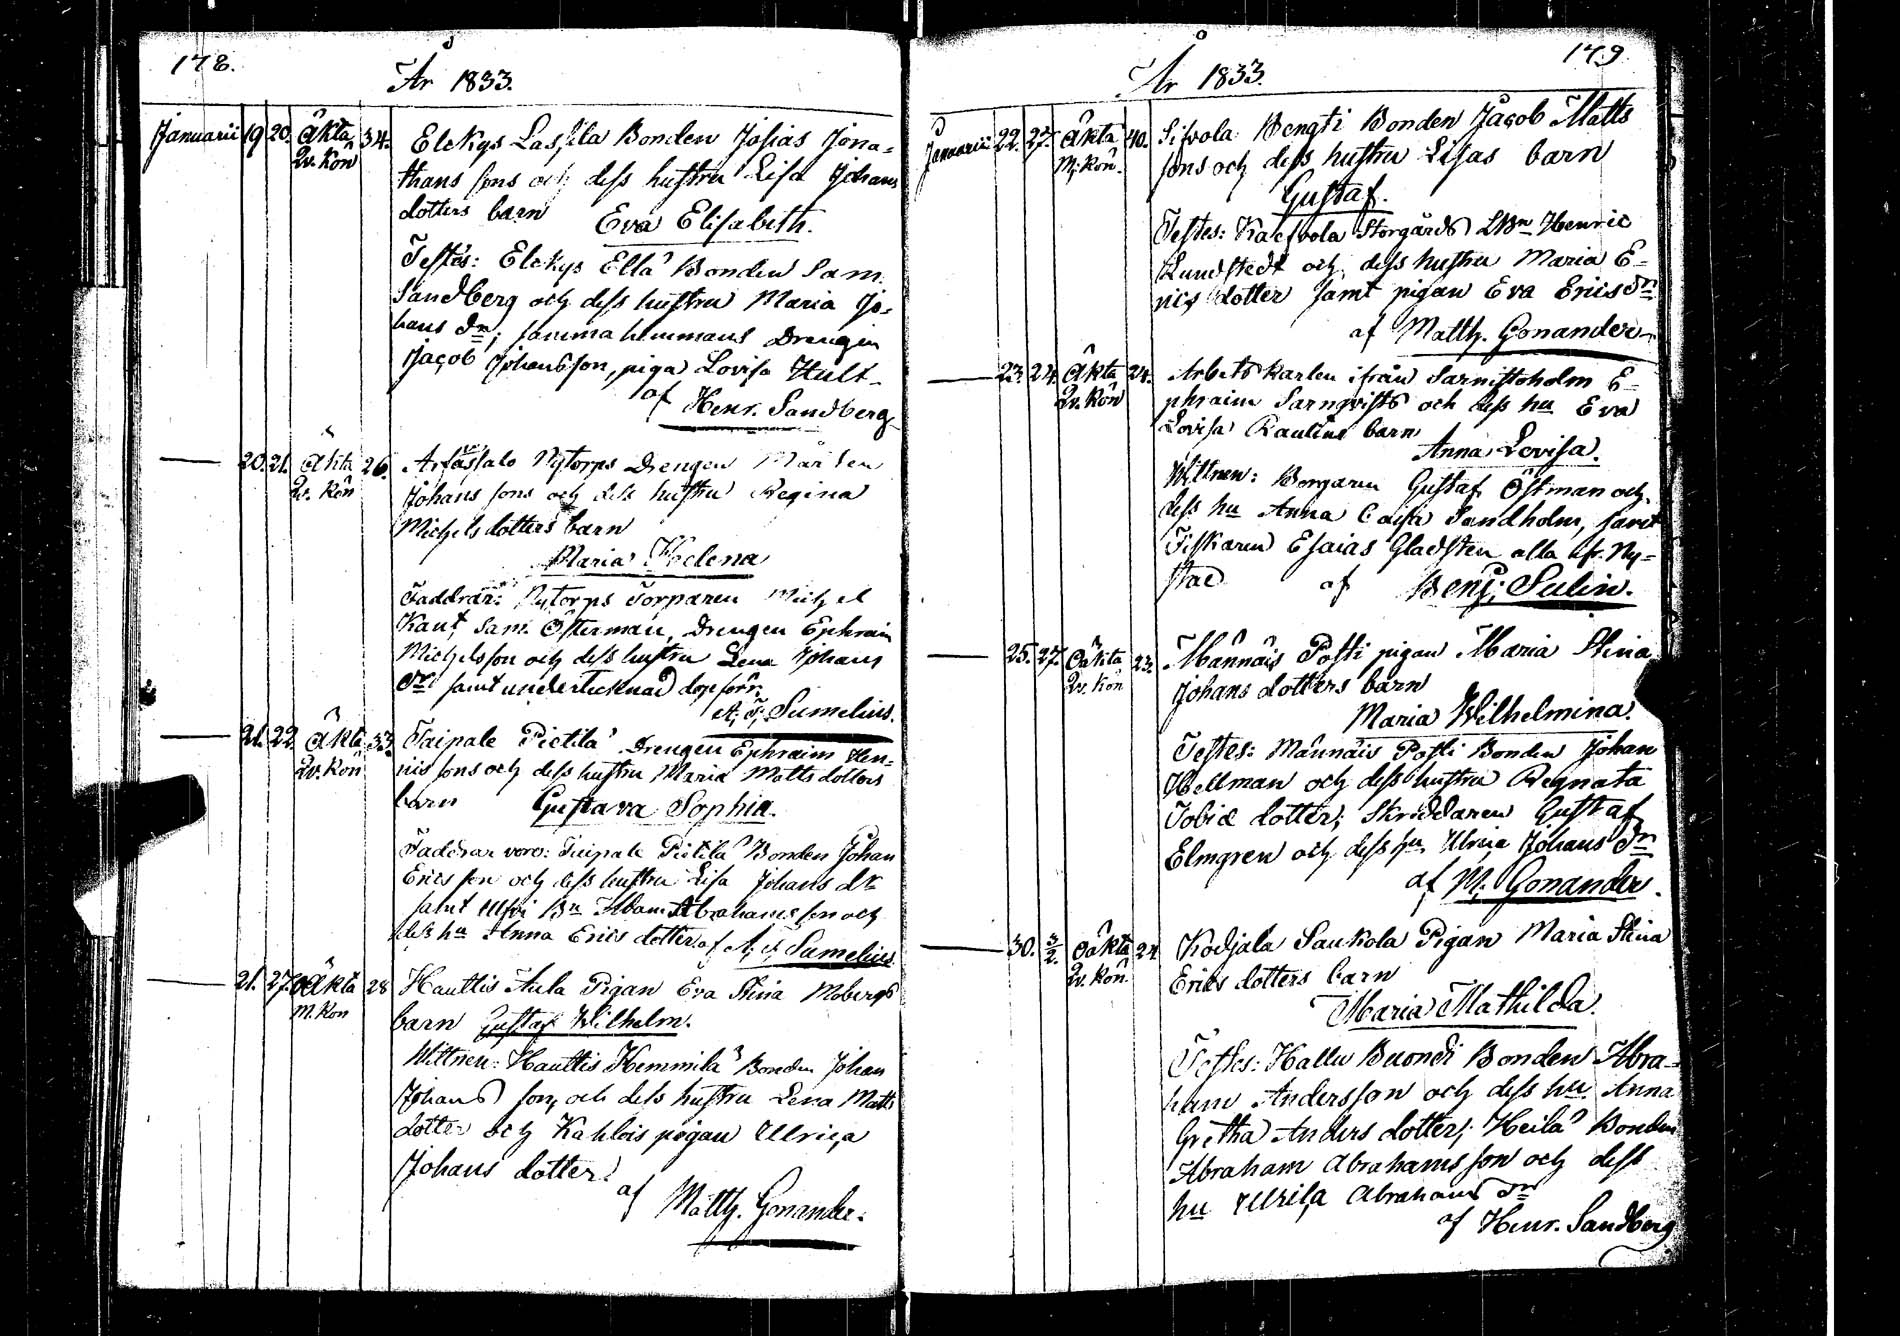 178.
År 1833.
Januarii 19 20. äkta 34. Elckys Lassila Bonden Josias Jona=
Qv. Kön thans sons och dess hustru Lisa Johans
dotters barn Eva Elisabeth.
Testes: Elckys Ellä Bonden Sam.
Sandberg och dess hustru Maria Jo=
hans dr; samma hemmans Drengen
Jacob Johansson, piga Lovisa Hult
af Henr. Sandberg
20. 21. äkta 26. Nytorps Drengen Mårten
Qv. Kön Johans sons och dess hustru Regina
Michels dotters barn
Maria Helena
Faddrar: Nytorps Torparen Michel
Kant, Sam. Österman, Drengen Ephraim
Michelsson och dess hustru Lena Johans
dr samt undertecknad dopförr.
Sumelius.
21. 22. äkta 33. Taipale Pietilä Drengen Ephraim Hen=
Qv. Kön ris sons och dess hustru Maria Matts dotters
barn Gustava Sophia.
Faddrar voro: Taipale Pietilä Bonden Johan
Ericsson och dess hustru Lisa Johans dr
samt Bn Adam Abrahamsson och
dess hu Anna Erics dotter af Sumelius
21. 27. oäkta 28 Hauttis Aula Pigan Eva Stina Mobergs
M. Kön barn Gustaf Wilhelm.
Wittnen: Hauttis Hemmilä Bonden Johan
Johans son, och dess hustru Lena Matts
dotter och Kahlois pigan Ulrica
Johans dotter.
af Matth. Gonander.
179
År 1833.
Januarii 22. 27. äkta 40. Sifvola Bengti Bonden Jacob Matts
M. Kön. sons och dess hustru Lisas barn
Gustaf.
Testes: Storgårds LBn Henric
Lundstedt och dess hustru Maria E=
rics dotter samt pigan Eva Erics dr
af Matth. Gonander
23. 24. äkta 24. Arbets karlen ifrån Sarnistoholm E=
Qv. Kön phraim Sarnqvists och dess hu Eva
Lovisa Rautins barn
Anna Lovisa.
Wittnen: Borgaren Gustaf Östman och
dess hu Anna Caisa Sandholm, samt
Fiskaren Esaias Gladsten alla fr. Ny=
stad af Benj. Sulin.
25. 27. oäkta 23. Männäis Posti pigan Maria Stina
Qv. Kön Johans dotters barn
Maria Wilhelmina.
Testes: Männäis Posti Bonden Johan
Hellman och dess hustru Regnata
Tobiæ dotter; Skräddaren Gustaf
Elmgren och dess hu Ulrica Johans dr
af M. Gonander.
30. 3/2. oäkta 24 Kodjala Saukola Pigan Maria Stina
Qv. Kön. Erics dotters barn
Maria Mathilda.
Testes: Hallu Buondi Bonden Abra=
ham Andersson och dess hu Anna
Gretha Anders dotter; Heilä Bonden
Abraham Abrahams son och dess
hu Ulrica Abrahams dr
af Henr. Sandberg